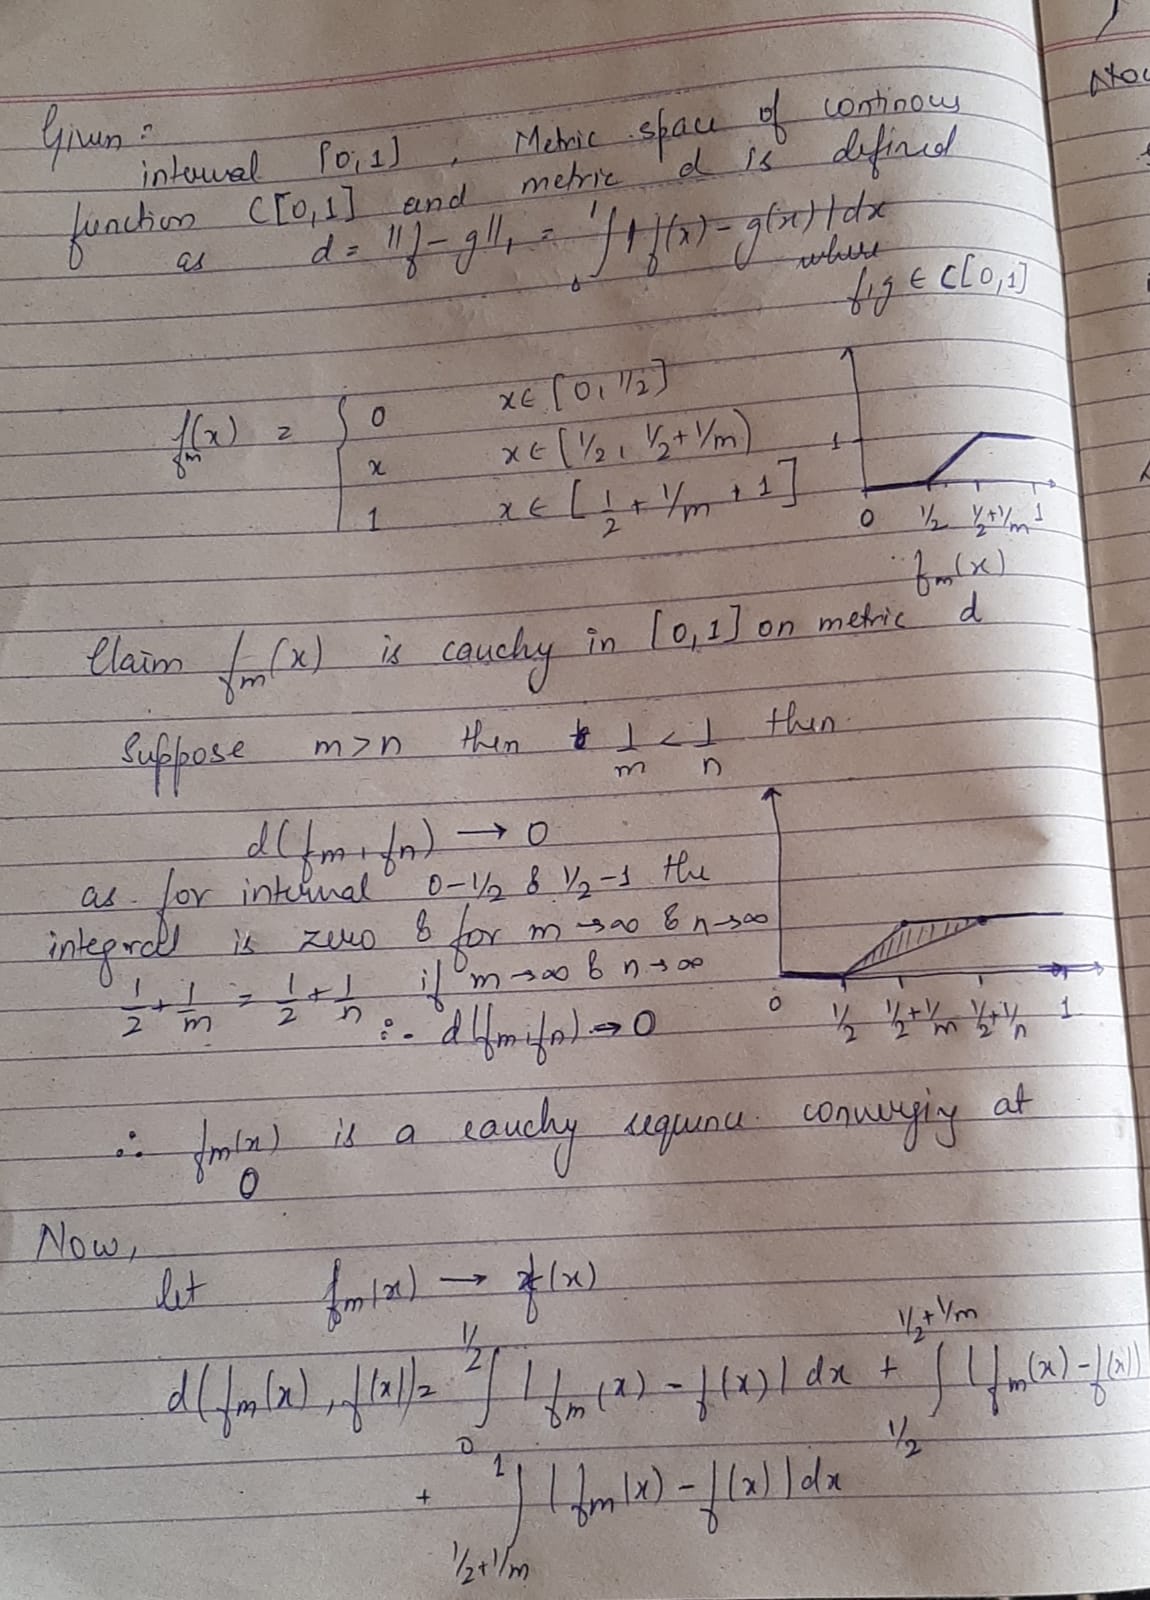 Given:
interval [0,1], Metric space of continous
function C[0,1] and metric d is defined
as d = ||f - g||₁ = ₀∫¹ |f(x) - g(x)| dx
where
f,g ∈ C[0,1]
fₘ(x) = { 0 x ∈ [0, 1/2]
x x ∈ [1/2, 1/2 + 1/m)
1 x ∈ [1/2 + 1/m + 1]
1
0 1/2 1/2+1/m 1
fₘ(x)
Claim fₘ(x) is cauchy in [0,1] on metric d
Suppose m>n then 1/m < 1/n then
d(fₘ, fₙ) → 0
as for interval 0-1/2 & 1/2-1 the
integral is zero & for m→∞ & n→∞
1/2 + 1/m = 1/2 + 1/n if m→∞ & n→∞
∴ d(fₘ, fₙ) → 0
0 1/2 1/2+1/m 1/2+1/n 1
∴ fₘ(x) is a cauchy sequence converging at
0
Now,
let fₘ(x) → f(x)
d(fₘ(x), f(x)) = ₀∫^(1/2) |fₘ(x) - f(x)| dx + ∫_(1/2)^(1/2+1/m) |fₘ(x) - f(x)|
+ ∫_(1/2+1/m)^1 |fₘ(x) - f(x)| dx